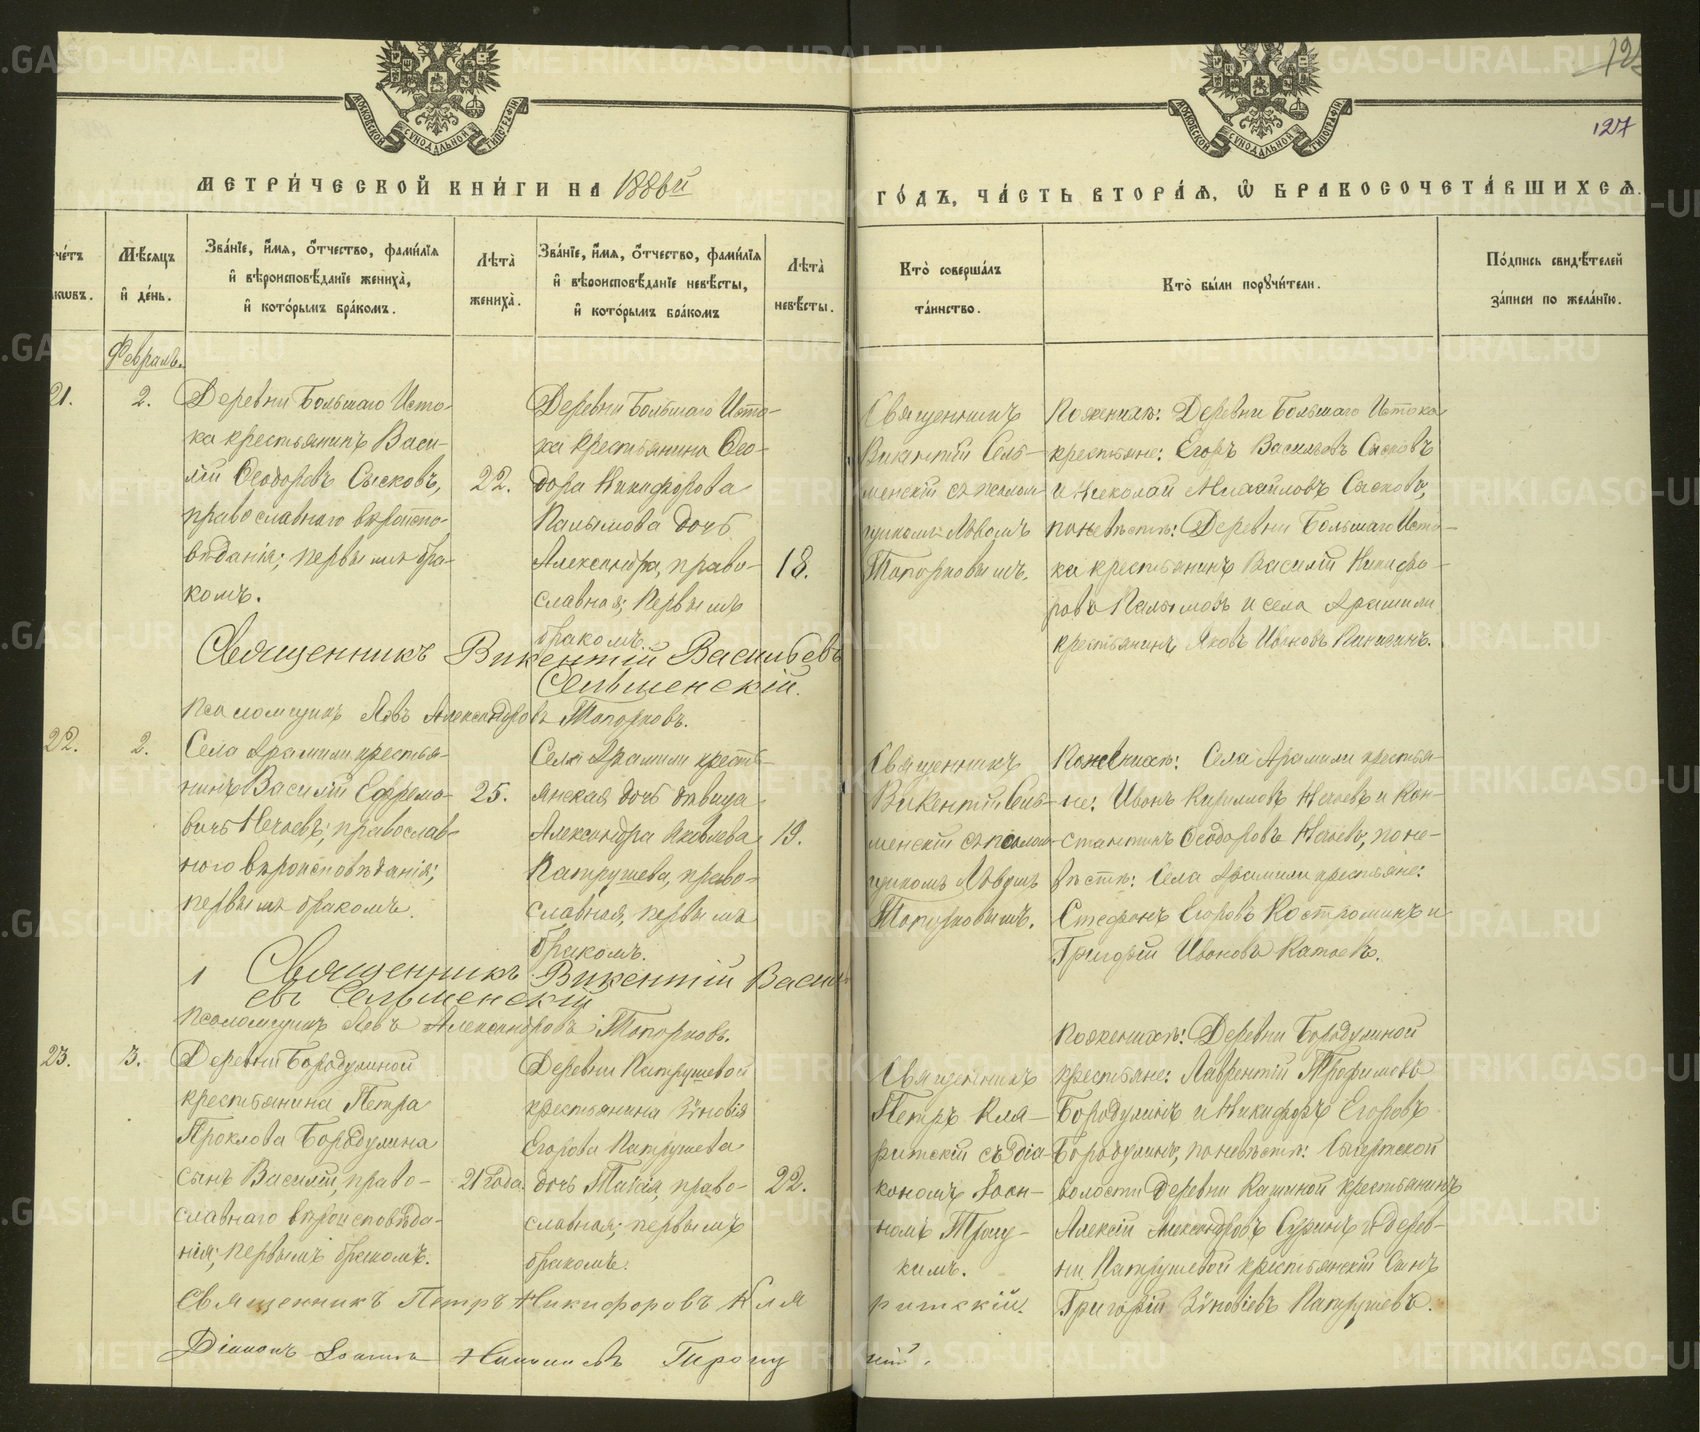 МЕТРИ́ЧЕСКОЙ КНИ́ГИ НА 1886й
ГО́ДЪ, ЧА́СТЬ ВТОРА́Я, Ѡ БРАКОСОЧЕТА́ВШИХСЯ.
127
Мѣсяцъ и҆ де́нь.
Зва́нїе, и҆́мя, ѻ҆́тчество, фами́лїя
и҆ вѣроисповѣ́данїе жениха̀,
и҆ кото́рымъ бра́комъ.
Лѣта̀
жениха̀.
Зва́нїе, и҆́мя, ѻ҆́тчество, фами́лїя
и҆ вѣроисповѣ́данїе невѣ́сты,
и҆ кото́рымъ бра́комъ
Лѣта̀
невѣ́сты.
Кто̀ соверша́лъ
та́инство.
Кто̀ бы́ли порꙋчи́тели.
По́дпись свидѣ́телей
за́писи по жела́нїю.
Февраль.
21.
2.
Деревни Большаго Исто-
ка крестьянинъ Васи-
лій Ѳеодоровъ Сысковъ,
православнаго вѣроиспо-
вѣданія; первымъ бра-
комъ.
22.
Деревни Большаго Исто-
ка крестьянина Ѳео-
дора Никифорова
Палымова дочь
Александра, право-
славная; первымъ
бракомъ.
18.
Священникъ
Викентій Сель-
менскій съ псалом-
щикомъ Львомъ
Топорковымъ.
По женихѣ: Деревни Большаго Истока
крестьяне: Егоръ Васильевъ Сысковъ
и Николай Михайловъ Сысковъ,
по невѣстѣ: Деревни Большаго Исто-
ка крестьянинъ Василій Никифо-
ровъ Палымовъ и села Арамили
крестьянинъ Яковъ Ивановъ
Священникъ Викентій Васильевъ
Сельменскій.
Псаломщикъ Левъ Александровъ Топорковъ.
22.
2.
Села Арамили крестья-
нинъ Василій Ефремо-
вичъ Нечаевъ; православ-
наго вѣроисповѣданія;
первымъ бракомъ.
25.
Села Арамили кресть-
янская дочь дѣвица
Александра Яковлева
Патрушева, право-
славная, первымъ
бракомъ.
19.
Священникъ
Викентій Сель-
менскій съ псалом-
щикомъ Львомъ
Топорковымъ.
По женихѣ: Села Арамили крестья-
не: Иванъ Кирилловъ Нечаевъ и Кон-
стантинъ Ѳеодоровъ Нечаевъ, по не-
вѣстѣ: Села Арамили крестьяне:
Стефанъ Егоровъ Костроминъ и
Григорій Ивановъ Катаевъ.
Священникъ Викентій Василь-
евъ Сельменскій
Псаломщикъ Левъ Александровъ Топорковъ.
23.
3.
Деревни Бородулиной
крестьянина Петра
Проклова Бородулина
сынъ Василій, право-
славнаго вѣроисповѣда-
нія; первымъ бракомъ.
21 года.
Деревни Патрушевой
крестьянина Зиновія
Егорова Патрушева
дочь Таисія, право-
славная; первымъ
бракомъ.
22.
Священникъ
Петръ Кля-
ритскій съ діа-
кономъ Іоан-
номъ
По женихѣ: Деревни Бородулиной
крестьяне: Лаврентій Трофимовъ
Бородулинъ и Никифоръ Егоровъ
Бородулинъ, по невѣстѣ: Сысертской
волости Деревни Кашиной крестьянинъ
Алексій Александровъ Суринъ и дерев-
ни Патрушевой крестьянскій сынъ
Григорій Зиновіевъ Патрушевъ.
Священникъ Петръ Никифоровъ Кляритскій.
Діаконъ Іоаннъ